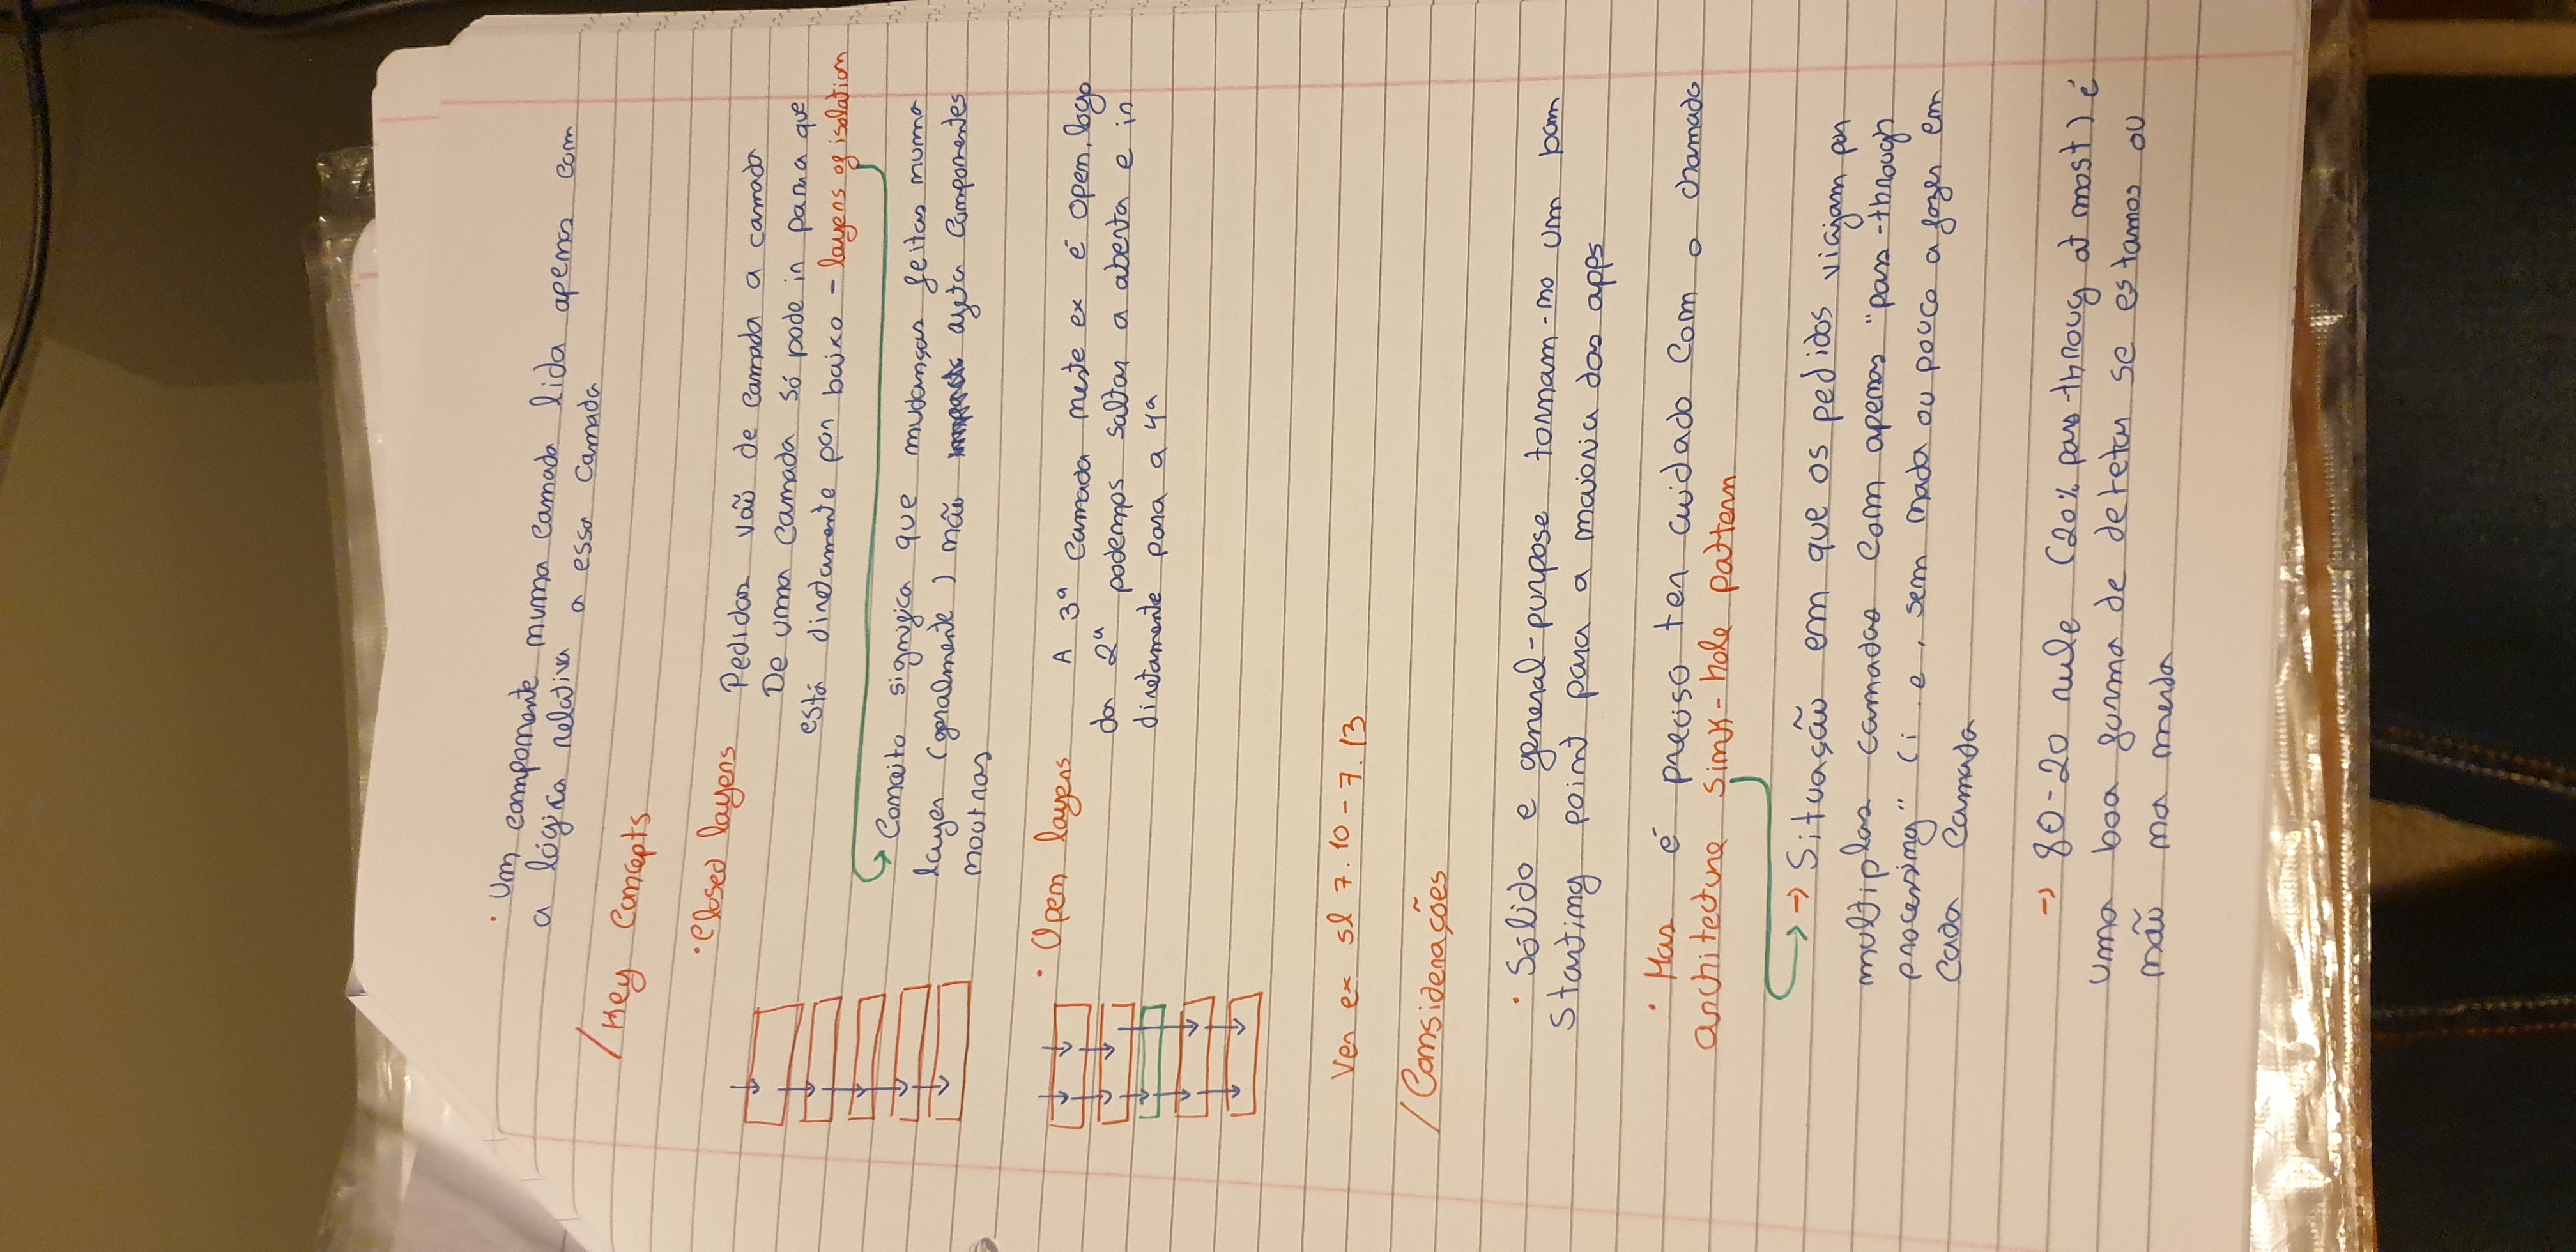 · Um componente numa camada lida apenas com
a lógica relativa a essa camada
/Key Concepts
· Closed layers Pedidos vão de camada a camada
De uma camada só pode ir para a que
está diretamente por baixo - layers of isolation
Conceito significa que mudanças feitas numa
layer (geralmente) não afeta componentes
noutras
· Open layers A 3ª camada neste ex é open, logo
da 2ª podemos saltar a aberta e ir
diretamente para a 4ª
Ver ex sl 7.10 - 7.13
/Considerações
· Sólido e general-purpose tornam-no um bom
starting point para a maioria das apps
· Mas é preciso ter cuidado com o chamado
architecture sink-hole pattern
→ Situação em que os pedidos viajam por
multiplas camadas com apenas "pass-through
processing" (i.e, sem nada ou pouco a fazer em
cada camada
→ 80-20 rule (20% pass-throug at most) é
uma boa forma de detetar se estamos ou
não na merda